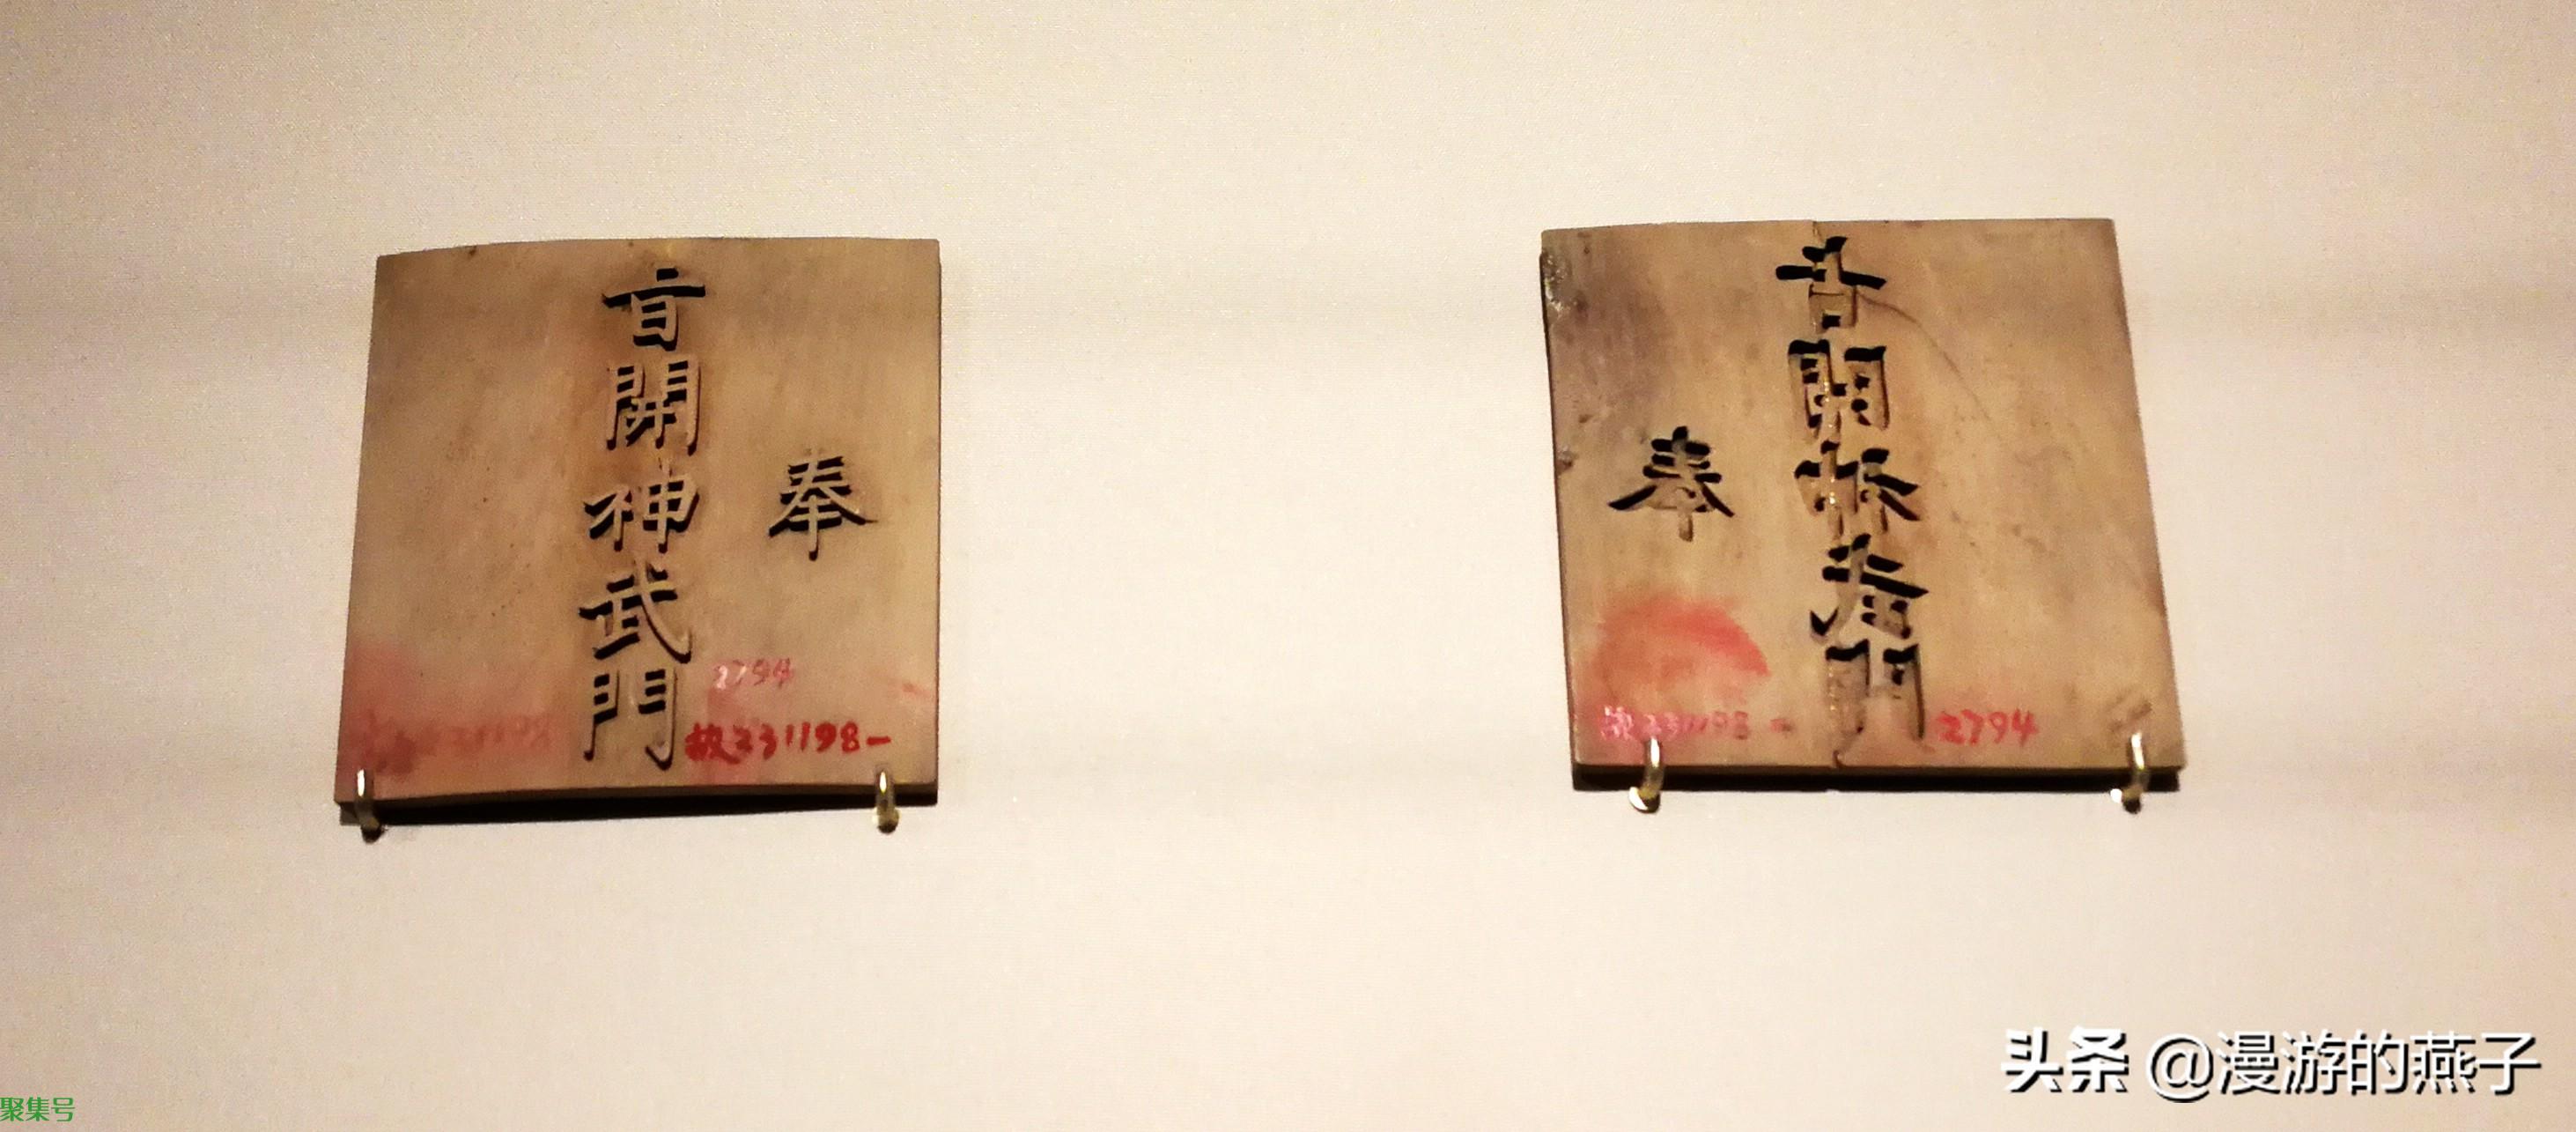 奉
旨開神武門
2794
故231198-
奉
故231198-
2794
头条 @漫游的燕子
聚集号